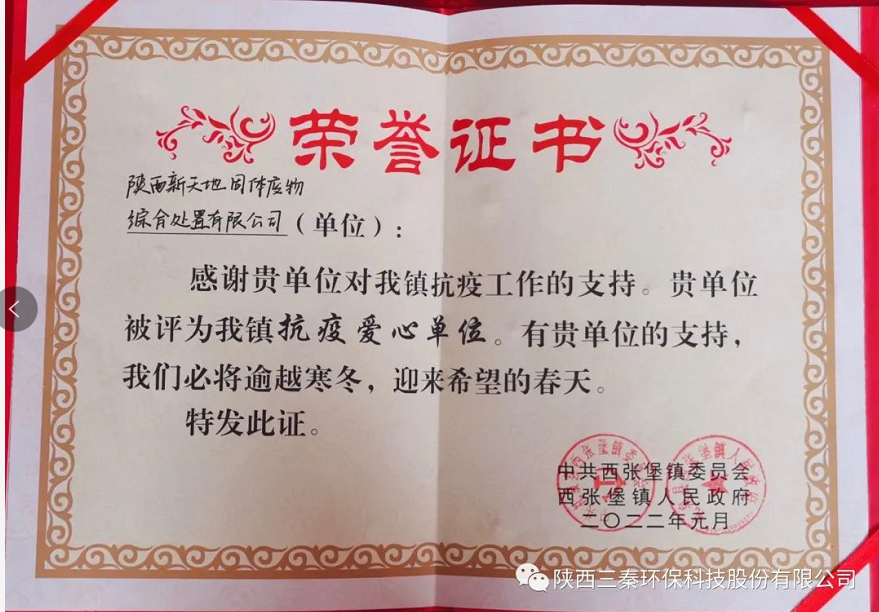 荣誉证书
陕西新天地固体废物
综合处置有限公司（单位）：
感谢贵单位对我镇抗疫工作的支持。贵单位
被评为我镇抗疫爱心单位。有贵单位的支持，
我们必将逾越寒冬，迎来希望的春天。
特发此证。
中共西张堡镇委员会
西张堡镇人民政府
二〇二二年元月
陕西三秦环保科技股份有限公司